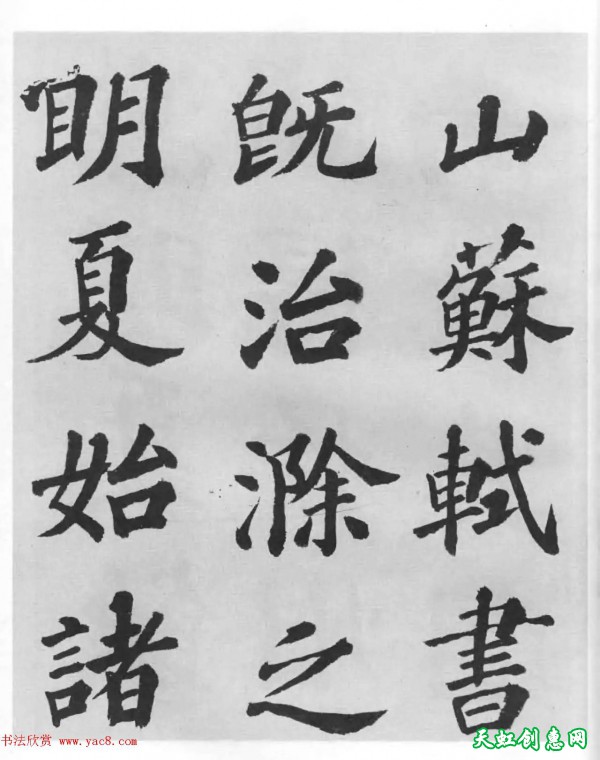 山蘇軾書
既治滁之
明夏始諸
书法欣赏 www.yac8.com
天虹创惠网